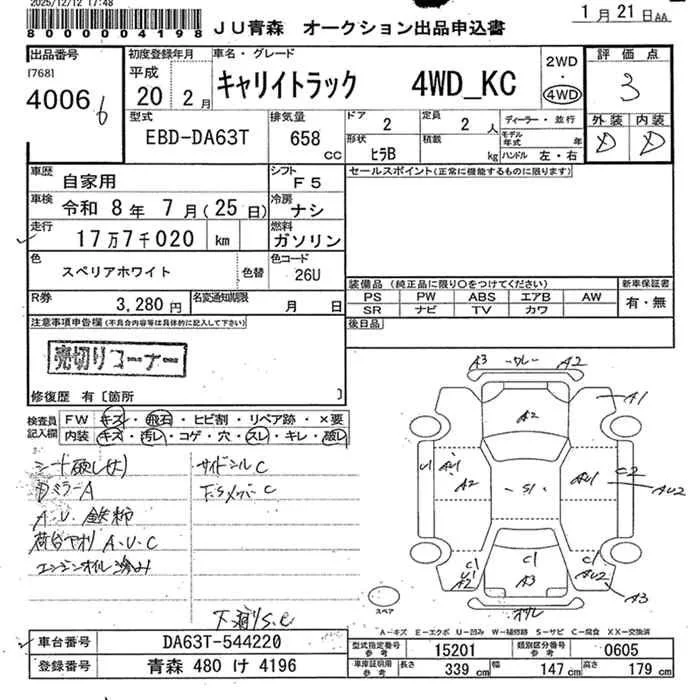 2025/12/12 17:48
8 0 0 0 0 0 4 1 9 8
JU青森 オークション出品申込書
1月21日AA
出品番号
[768]
4006
6
初度登録年月
平成
20 2月
車名・グレード
キャリイトラック 4WD_KC
2WD
・
4WD
評価点
3
外装 内装
D D
型式
EBD-DA63T
排気量
658 cc
ドア 2
定員 2 人
ディーラー・並行
モデル年式 年
形状 ヒラB
積載 kg
ハンドル 左・右
車歴 自家用
シフト F5
セールスポイント(正常に機能するものに限ります)
車検 令和 8年 7月(25日)
冷房 ナシ
走行 17万7千020 km
燃料 ガソリン
色 スペリアホワイト 色替
色コード 26U
装備品 (純正品に限り○をつけてください)
新車保証書
PS PW ABS エアB AW
SR ナビ TV カワ
有・無
R券 3,280円
名変通知期限 月 日
後日品
注意事項申告欄(不具合内容等は具体的に記入して下さい)
売切りコーナー
修復歴 有〔箇所 〕
検査員記入欄
FW キズ・飛石・ヒビ割・リペア跡・×要
内装 キズ・汚レ・コゲ・穴・スレ・キレ・破レ
サイドシルC
DミラーA
A.U.鉄粉
荷台アオリ A.U.C
下廻りS.C
A3 ワレ A2
A1
A2
U1 AU1 A2
S1
AU1 C2 AU2
C1 U1 A2
C1 A3
C1 AU2
A3
スペア
A-キズ E-エクボ U-凹み W-補修跡 S-サビ C-腐食 XX-交換済
車台番号 DA63T-544220
登録番号 青森 480 け 4196
型式指定番号 参考 15201
類別区分番号 参考 0605
車庫証明用 参考 長さ 339 cm 幅 147 cm 高さ 179 cm